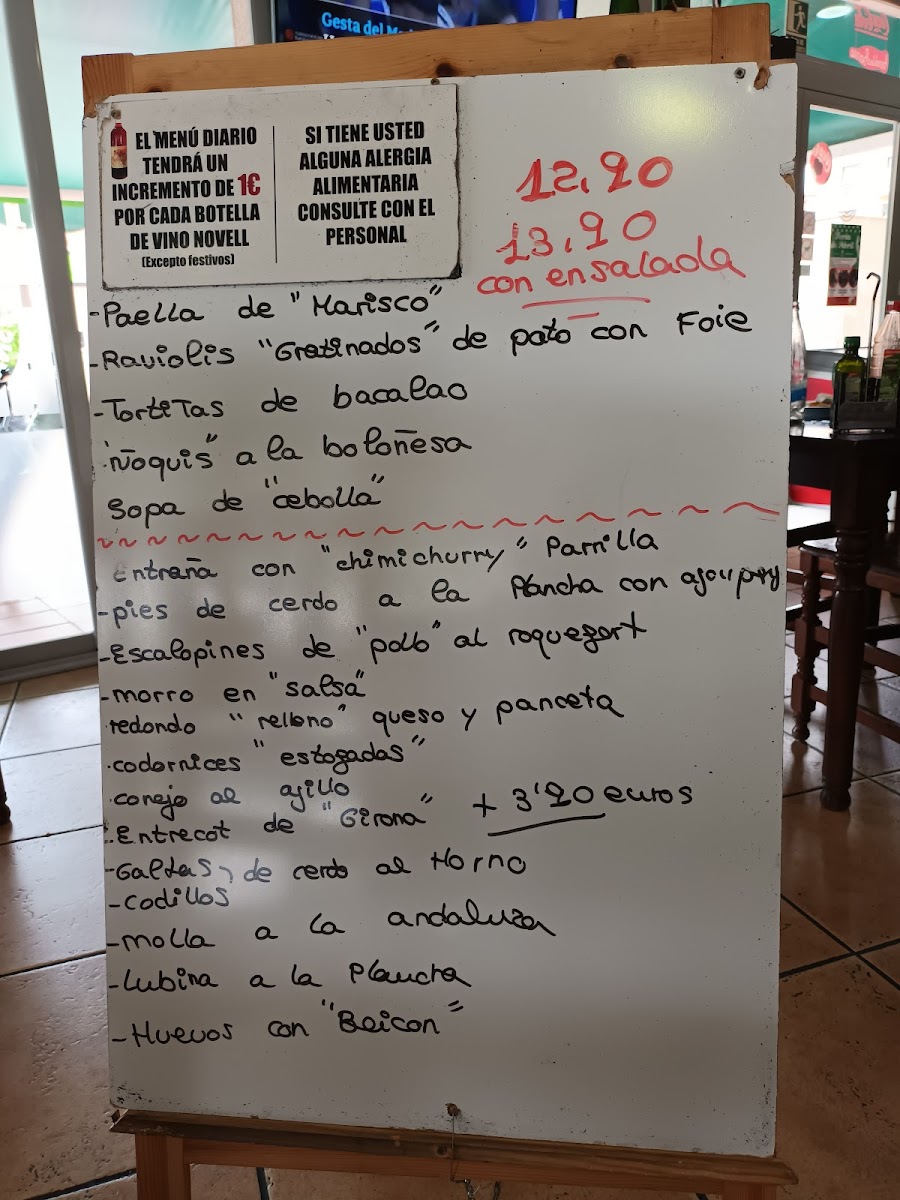 Gesta del
EL MENÚ DIARIO
TENDRÁ UN
INCREMENTO DE 1€
POR CADA BOTELLA
DE VINO NOVELL
(Excepto festivos)
SI TIENE USTED
ALGUNA ALERGIA
ALIMENTARIA
CONSULTE CON EL
PERSONAL
12,90
13,90
con ensalada
-Paella de "Marisco"
-Raviolis "Gratinados" de pato con Foie
-Tortitas de bacalao
ñoquis" a la boloñesa
Sopa de "cebolla"
Entraña con "chimichurry" Parrilla
-pies de cerdo a la Plancha con ajo
-Escalopines de "pollo" al roquefort
-morro en "salsa"
redondo "relleno" queso y panceta
codornices "estofadas"
conejo al ajillo
Entrecot de "Girona" + 3'90 euros
-Galtas, de cerdo al Horno
-Codillos
-molla a la andaluza
-Lubina a la Plancha
-Huevos con "Beicon"